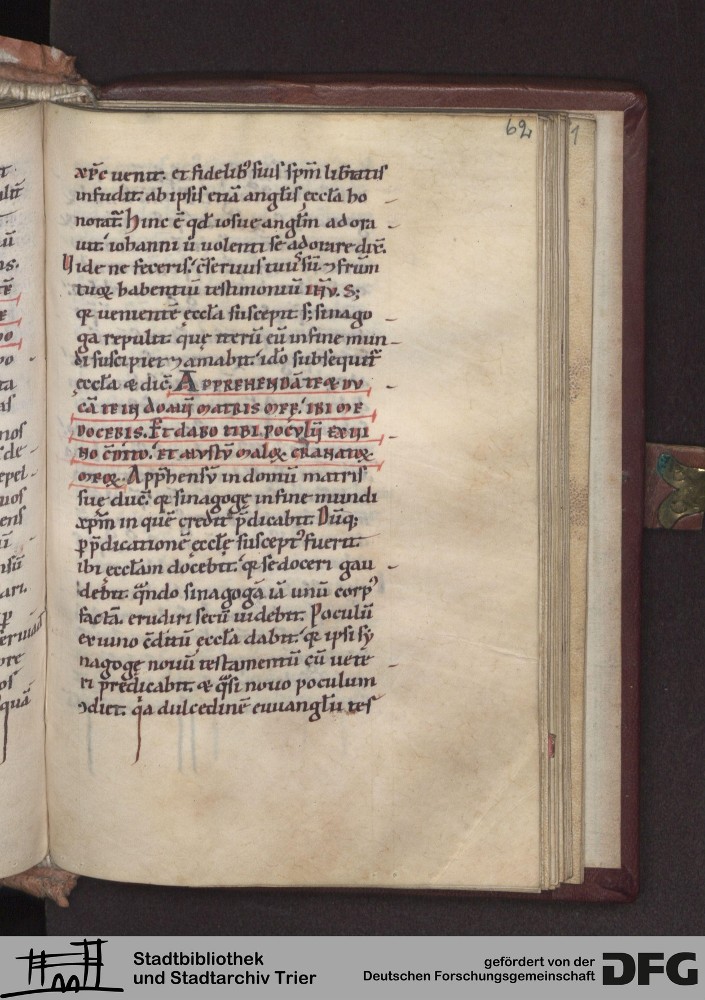 62
xp̄c uenit. et fidelib; suis sp̄m lib̄tatis
infudit. ab ipsis etiā anglis ęccła ho
norat̄. hinc ē qd̄ iosue angłm adora
uit. iohanni ū uolenti se adorare dic̄.
Vide ne feceris. c̄seruus tuus sū ⁊ fr̄um
tuoꝝ habentiū testimoniū
qꝛ uementē ęccła suscepit s; sinago
ga repulit. quę iterū cū in fine mun
di suscipiet ⁊ amabit. ido subsequit̄
ęccła & dic̄. APPREHENDĀ TE & DU
CĀ TE IN DOMŪ MATRIS MEE. IBI ME
DOCEBIS. Et DABO TIBI POCULŪ EX UI
NO C̄DITO. ET MUSTŪ MALOꝝ GRANATOꝝ
MEOꝝ. App̄hensū in domū matris
suę duc̄. qꝛ sinagogę in fine mundi
xp̄m in quē credit p̄dicabit. Dūq;
ꝑ p̄dicationē ęccłę susceptꝰ fuerit.
ibi ęccłam docebit. qꝛ se doceri gau
debit. q̄ndo sinagogā iā unū corpꝰ
factā. erudiri secū uidebit. Poculū
ex uino c̄ditū ęccła dabit. qꝛ ipsi sy
nagogę nouū testamentū cū uete
ri predicabit. & q̄si nouo poculum
ↄdiet. q̄a dulcedinē euuangłii tes
Stadtbibliothek
und Stadtarchiv Trier
gefördert von der
Deutschen Forschungsgemeinschaft
DFG